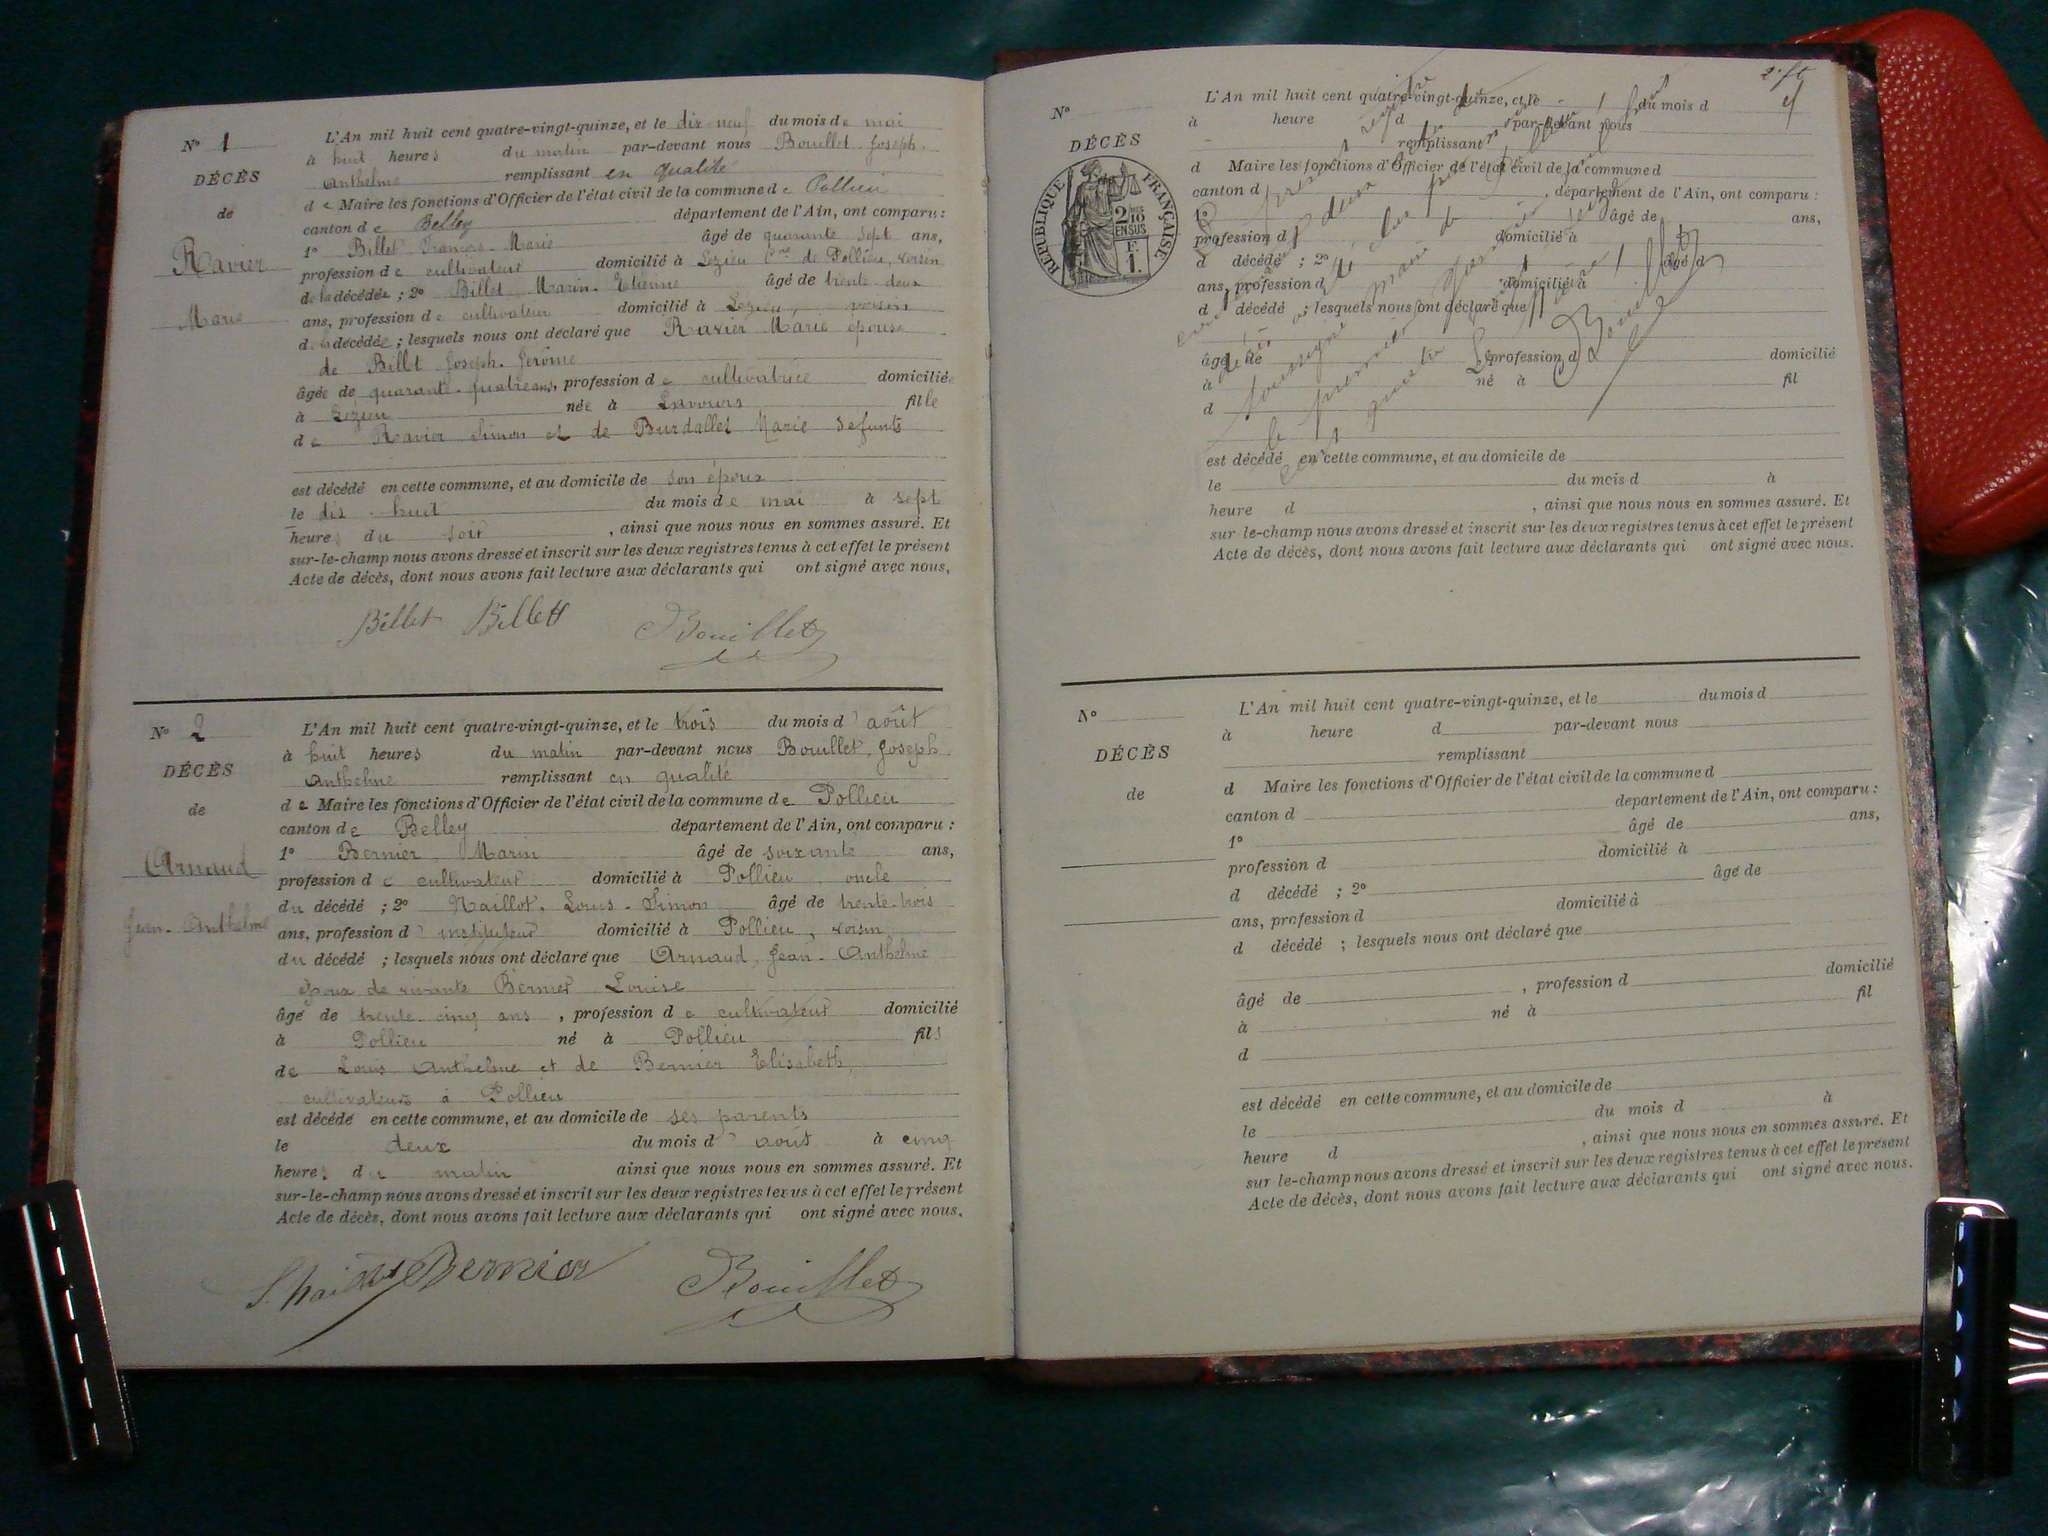 N° 1
DÉCÈS
de
Ravier
Marie
L'An mil huit cent quatre-vingt-quinze, et le dix neuf du mois de mai
à huit heures du matin par-devant nous Bouillet Joseph.
Anthelme remplissant en qualité
de Maire les fonctions d'Officier de l'état civil de la commune de Pollieu
canton de Belley département de l'Ain, ont comparu :
1° Billet François-Marie âgé de quarante sept ans,
profession de cultivateur domicilié à Lezieu Cne de Pollieu, voisin
de la décédée ; 2° Billet Marin-Etienne âgé de trente deux
ans, profession de cultivateur domicilié à Lezieu, voisin
de la décédée ; lesquels nous ont déclaré que Ravier Marie épouse
de Billet Joseph-Jérôme
âgée de quarante-quatre ans, profession de cultivatrice domiciliée
à Lezieu née à Lavours fille
de Ravier Simon et de Burdallet Marie défunts
est décédé en cette commune, et au domicile de son époux
le dix-huit du mois de mai à sept
heures du soir, ainsi que nous nous en sommes assuré. Et
sur-le-champ nous avons dressé et inscrit sur les deux registres tenus à cet effet le présent
Acte de décès, dont nous avons fait lecture aux déclarants qui ont signé avec nous,
Billet Billet Bouillet
N° 2
DÉCÈS
de
Arnaud
Jean-Anthelme
L'An mil huit cent quatre-vingt-quinze, et le trois du mois d'août
à huit heures du matin par-devant nous Bouillet, Joseph
Anthelme remplissant en qualité
de Maire les fonctions d'Officier de l'état civil de la commune de Pollieu
canton de Belley département de l'Ain, ont comparu :
1° Bernier Marin âgé de soixante ans,
profession de cultivateur domicilié à Pollieu oncle
du décédé ; 2° Maillot-Louis-Simon âgé de trente-trois
ans, profession d'instituteur domicilié à Pollieu, voisin
du décédé ; lesquels nous ont déclaré que Arnaud, Jean-Anthelme
époux de vivante Bernier Louise
âgé de trente-cinq ans, profession de cultivateur domicilié
à Pollieu né à Pollieu fils
de Louis Anthelme et de Bernier Elisabeth,
cultivateurs à Pollieu
est décédé en cette commune, et au domicile de ses parents
le deux du mois d'août à cinq
heures du matin ainsi que nous nous en sommes assuré. Et
sur-le-champ nous avons dressé et inscrit sur les deux registres tenus à cet effet le présent
Acte de décès, dont nous avons fait lecture aux déclarants qui ont signé avec nous.
Bernier Bouillet
N°
DÉCÈS
RÉPUBLIQUE FRANÇAISE
2 DMES 10
EN SUS
F.
1.
L'An mil huit cent quatre-vingt-quinze, et le du mois d
à heure d par-devant nous
remplissant
d Maire les fonctions d'Officier de l'état civil de la commune d
canton d , département de l'Ain, ont comparu :
1° âgé de ans,
profession d domicilié à
d décédé ; 2° âgé d
ans, profession d domicilié à
d décédé ; lesquels nous ont déclaré que
âgé de profession d domicilié
à né à fil
d
est décédé en cette commune, et au domicile de
le du mois d à
heure d , ainsi que nous nous en sommes assuré. Et
sur-le-champ nous avons dressé et inscrit sur les deux registres tenus à cet effet le présent
Acte de décès, dont nous avons fait lecture aux déclarants qui ont signé avec nous.
Bouillet
N°
DÉCÈS
de
L'An mil huit cent quatre-vingt-quinze, et le du mois d
à heure d par-devant nous
remplissant
d Maire les fonctions d'Officier de l'état civil de la commune d
canton d département de l'Ain, ont comparu :
1° âgé de ans,
profession d domicilié à
d décédé ; 2° âgé de
ans, profession d domicilié à
d décédé ; lesquels nous ont déclaré que
âgé de , profession d domicilié
à né à fil
d
est décédé en cette commune, et au domicile de
le du mois d à
heure d , ainsi que nous nous en sommes assuré. Et
sur-le-champ nous avons dressé et inscrit sur les deux registres tenus à cet effet le présent
Acte de décès, dont nous avons fait lecture aux déclarants qui ont signé avec nous.